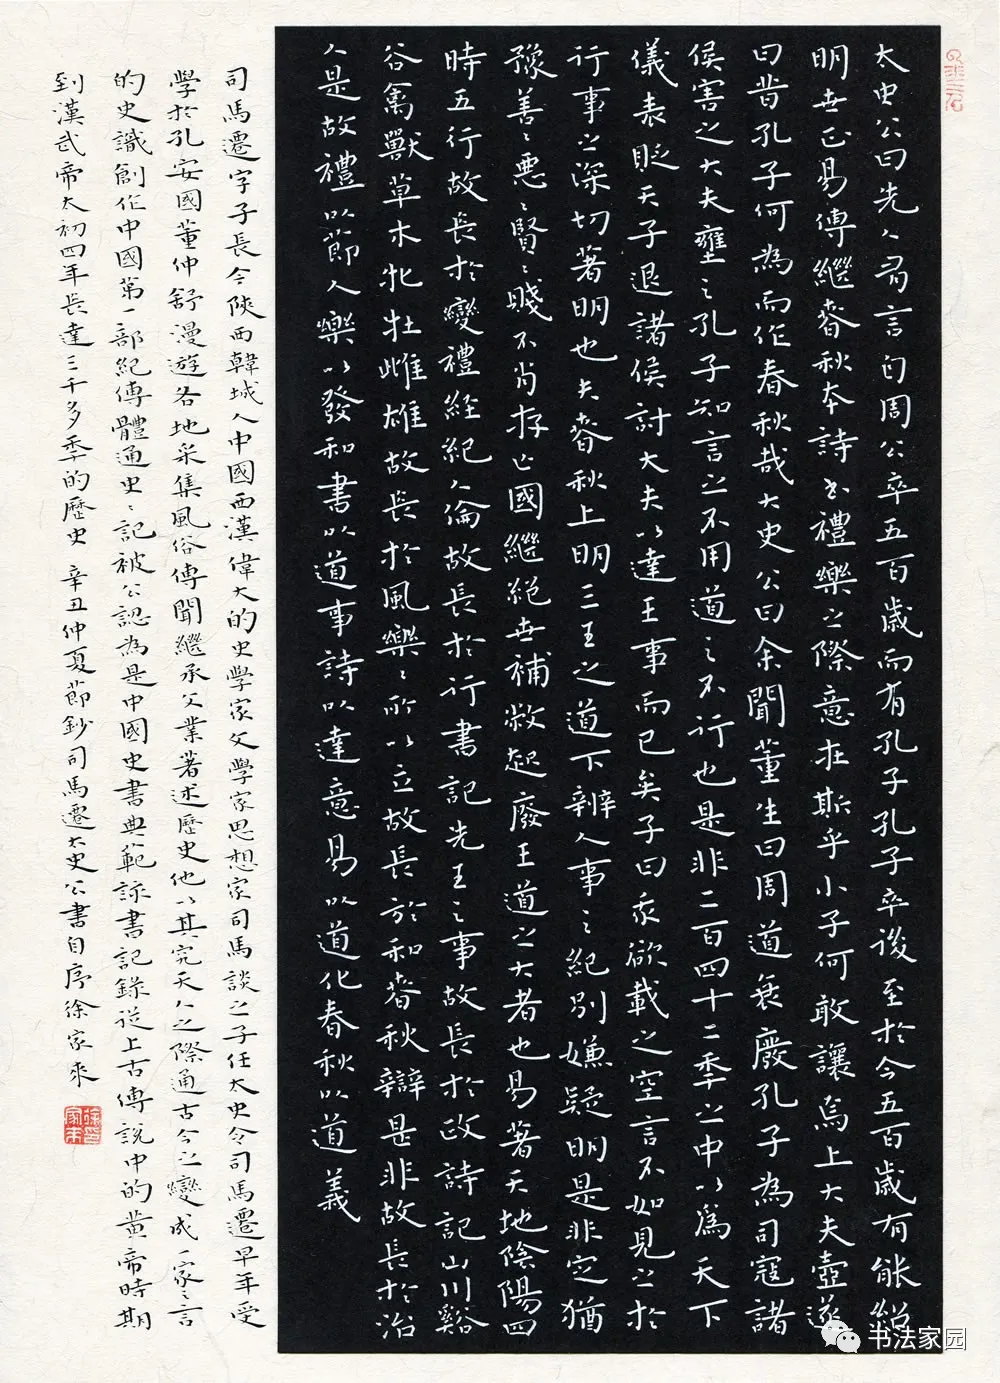 太史公曰先人有言自周公卒五百歲而有孔子孔子卒後至於今五百歲有能紹
明世正易傳繼春秋本詩書禮樂之際意在斯乎小子何敢讓焉上大夫壺遂
曰昔孔子何為而作春秋哉太史公曰余聞董生曰周道衰廢孔子為司寇諸
侯害之大夫壅之孔子知言之不用道之不行也是非二百四十二季之中以為天下
儀表貶天子退諸侯討大夫以達王事而已矣子曰我欲載之空言不如見之於
行事之深切著明也夫春秋上明三王之道下辨人事之紀別嫌疑明是非定猶
豫善善惡惡賢賢賤不肖存亡國繼絕世補敝起廢王道之大者也易著天地陰陽四
時五行故長於變禮經紀人倫故長於行書記先王之事故長於政詩記山川谿
谷禽獸草木牝牡雌雄故長於風樂樂所以立故長於和春秋辯是非故長於治
人是故禮以節人樂以發和書以道事詩以達意易以道化春秋以道義
司馬遷字子長今陝西韓城人中國西漢偉大的史學家文學家思想家司馬談之子任太史令司馬遷早年受
學於孔安國董仲舒漫遊各地采集風俗傳聞繼承父業著述歷史他以其究天人之際通古今之變成一家之言
的史識創作中國第一部紀傳體通史史記被公認為是中國史書典範該書記錄從上古傳說中的黃帝時期
到漢武帝太初四年長達三千多季的歷史 辛丑仲夏節鈔司馬遷太史公書自序徐家來
徐家來印
书法家园